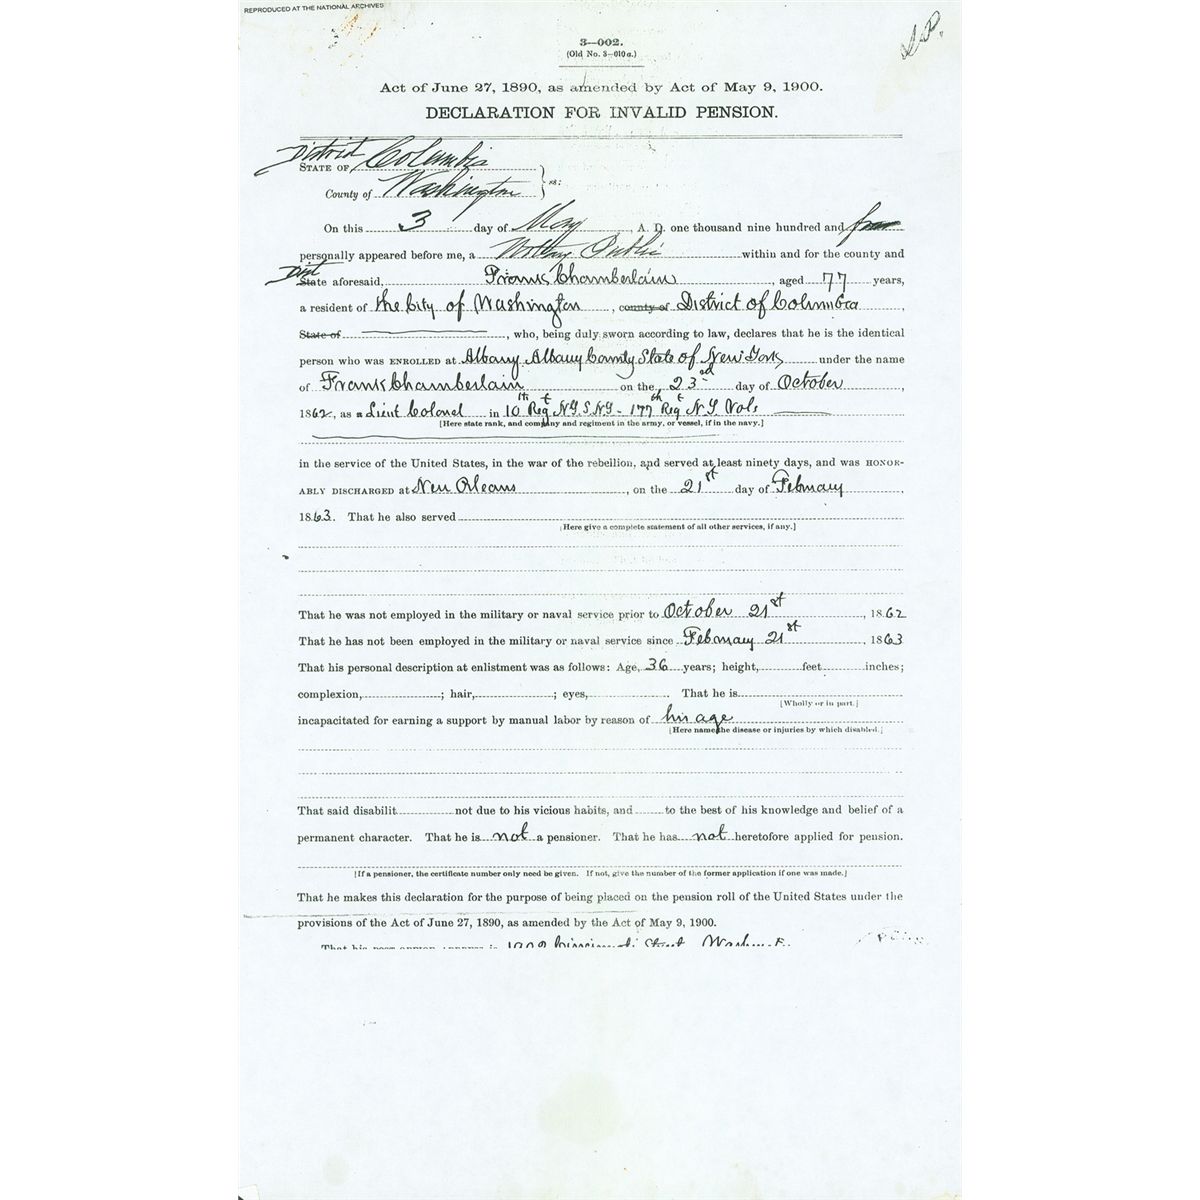 REPRODUCED AT THE NATIONAL ARCHIVES
3—002.
(Old No. 3—010a.)
Act of June 27, 1890, as amended by Act of May 9, 1900.
DECLARATION FOR INVALID PENSION.
District
STATE OF Columbia
County of Washington } ss:
On this 3 day of May, A. D. one thousand nine hundred and four
personally appeared before me, a Notary Public within and for the county and
Dist
State aforesaid, Frank Chamberlain, aged 77 years,
a resident of the City of Washington, county of District of Columbia,
State of, who, being duly sworn according to law, declares that he is the identical
person who was ENROLLED at Albany Albany County State of New York under the name
of Frank Chamberlain on the 23rd day of October,
1862, as a Lieut Colonel in 10th Regt N.Y.S.N.G - 177th Regt N.Y. Vols
[Here state rank, and company and regiment in the army, or vessel, if in the navy.]
in the service of the United States, in the war of the rebellion, and served at least ninety days, and was HONOR-
ABLY DISCHARGED at New Orleans, on the 21st day of February,
1863. That he also served
[Here give a complete statement of all other services, if any.]
That he was not employed in the military or naval service prior to October 21st, 1862
That he has not been employed in the military or naval service since February 21st, 1863
That his personal description at enlistment was as follows: Age, 36 years; height, feet inches;
complexion, ; hair, ; eyes, . That he is
[Wholly or in part.]
incapacitated for earning a support by manual labor by reason of his age
[Here name the disease or injuries by which disabled.]
That said disabilit not due to his vicious habits, and to the best of his knowledge and belief of a
permanent character. That he is not a pensioner. That he has not heretofore applied for pension.
[If a pensioner, the certificate number only need be given. If not, give the number of the former application if one was made.]
That he makes this declaration for the purpose of being placed on the pension roll of the United States under the
provisions of the Act of June 27, 1890, as amended by the Act of May 9, 1900.